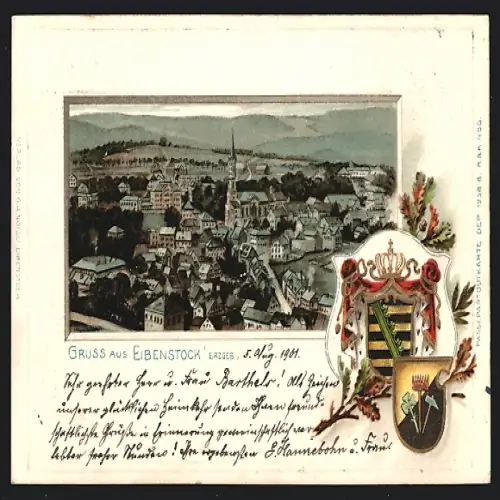 GRUSS AUS EIBENSTOCK ERZGEB., 5. Aug. 1901.
Sehr geehrter Herr u. Frau Barthels! Als Zeichen
unserer glücklichen Heimkehr senden Ihnen freund-
schaftliche Grüße in Erinnerung gemeinschaftlich ver-
lebter froher Stunden! Ihre ergebensten Hannebohn u. Frau.
VERLAG VON
PASSEPARTOUTKARTE